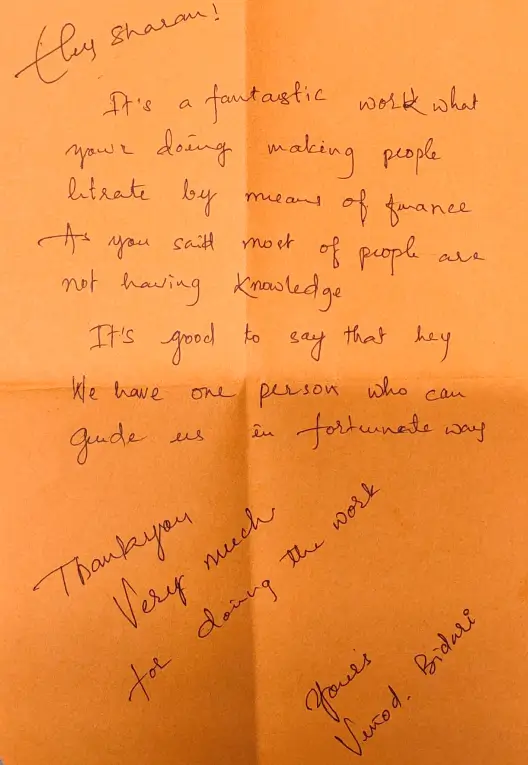 Hey Sharan!
It's a fantastic work what
your doing making people
litrate by means of finance
As you said most of people are
not having knowledge
It's good to say that hey
We have one person who can
guide us in fortunate way
Thankyou
Very much
for doing the work
Your's
Vinod. Bidari